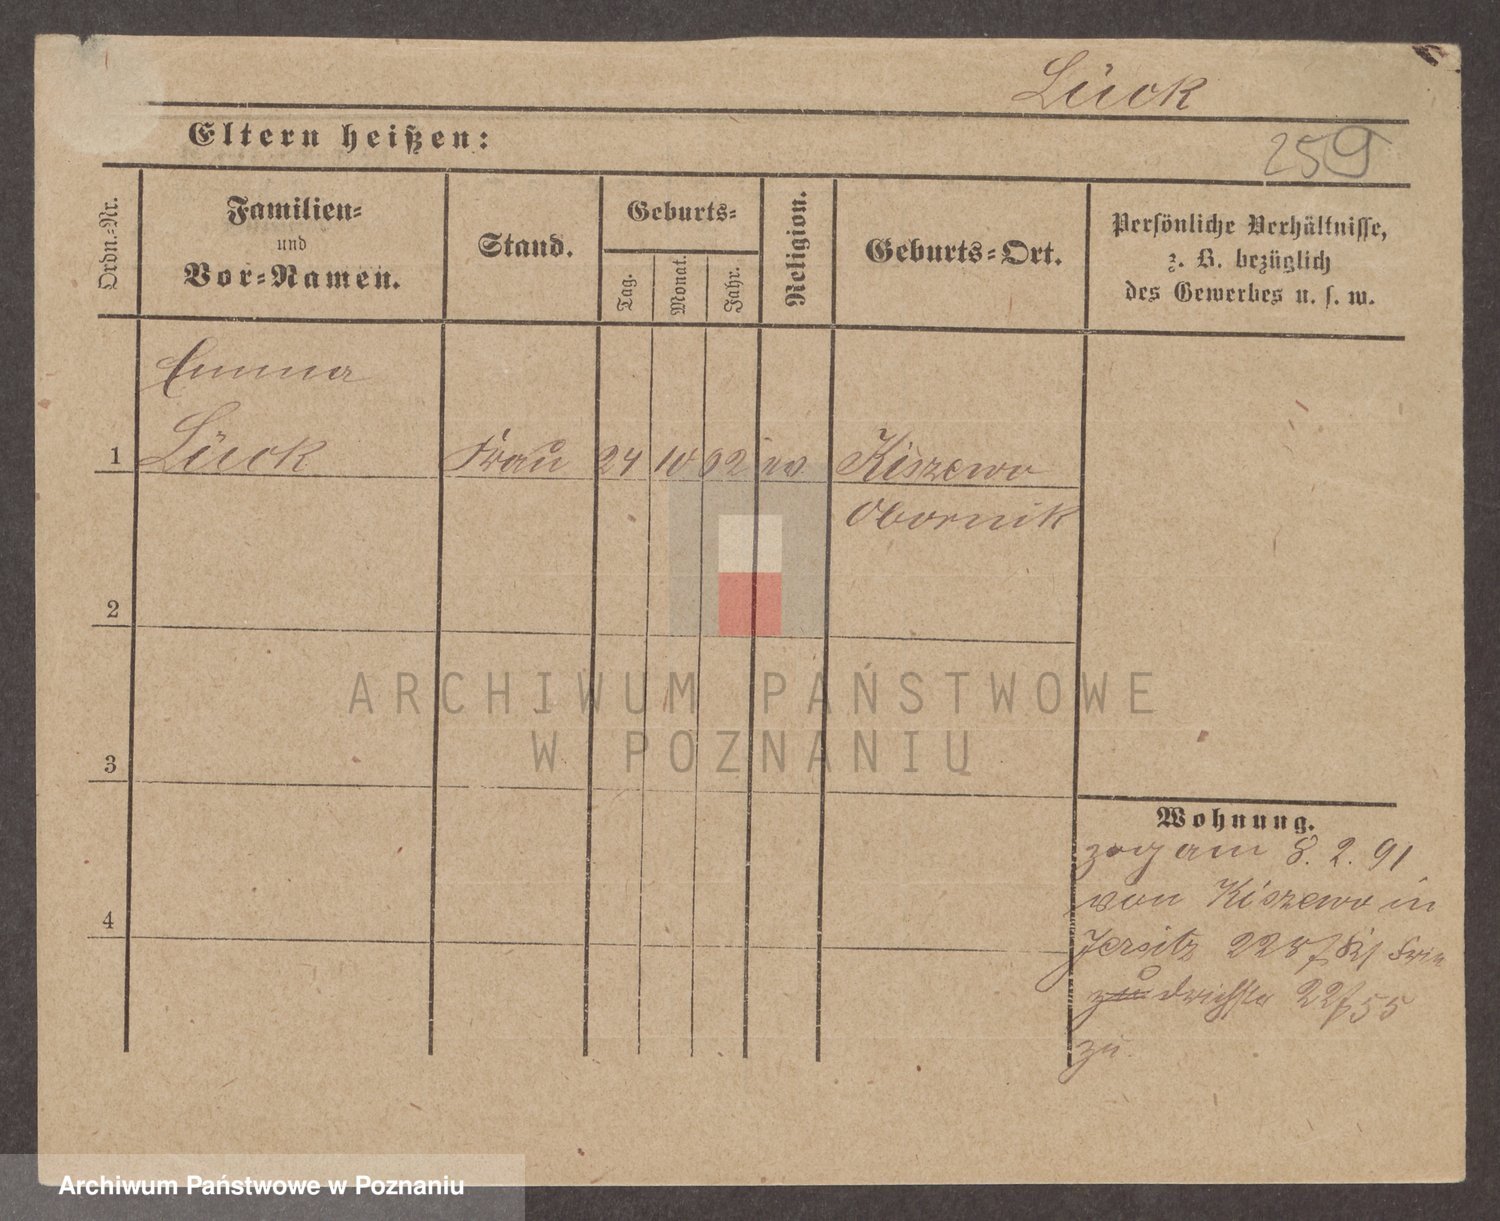 Lück
Eltern heißen:
259
Ordn.-Nr.
Familien-
und
Vor-Namen.
Stand.
Geburts-
Tag.
Monat.
Jahr.
Religion.
Geburts-Ort.
Persönliche Verhältnisse,
z. B. bezüglich
des Gewerbes u. s. w.
Emma
1 Lück Frau 24 10 62 ev Kiszewo
Obornik
2
3
4
Wohnung.
zog am 8. 2. 91
von Kiszewo in
Jersitz
22/55
zu
ARCHIWUM PAŃSTWOWE
W POZNANIU
Archiwum Państwowe w Poznaniu